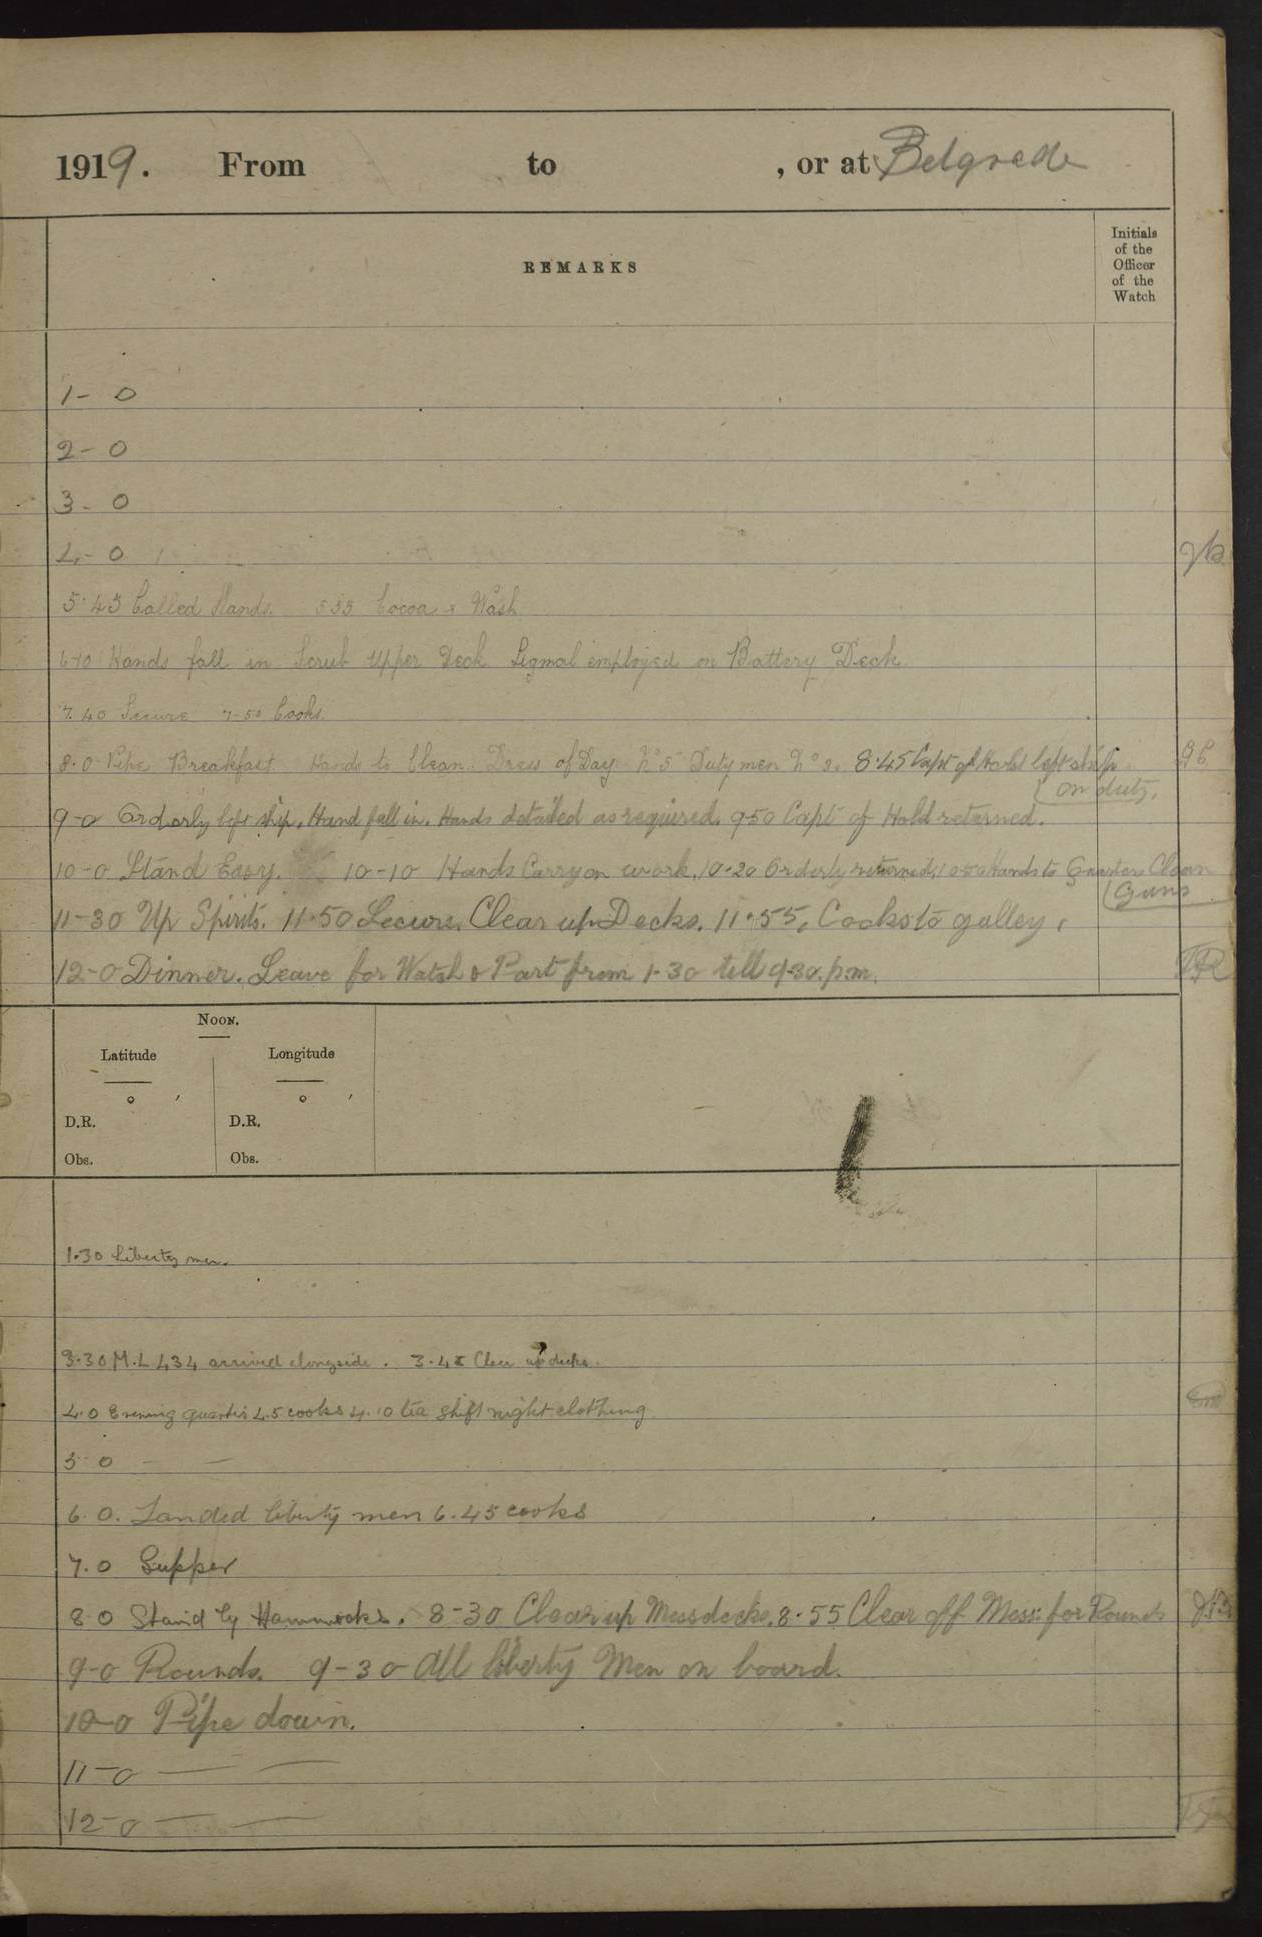 1919. From to , or at Belgrade
REMARKS
Initials
of the
Officer
of the
Watch
1- 0
2- 0
3- 0
4- 0
5.45 Called Hands. 555 Cocoa & Wash
6-10 Hands fall in Scrub Upper Deck Signal employed on Battery Deck.
7.40 Secure 7-50 Cooks.
8.0 Pipe Breakfast Hands to Clean. Dress of Day No 5 Duty men No 3. 8.45 Capt of Hold left ship
on duty.
9-0 Orderly left ship. Hand fall in. Hands detailed as required. 9.50 Capt of Hold returned.
10-0 Stand Easy. 10-10 Hands Carry on work. 10-20 Orderly returned. Hands to Quarters Clean
Guns
11-30 Up Spirits. 11.50 Secure. Clear up Decks. 11.55. Cooks to galley.
12-0 Dinner. Leave for Watch & Part from 1-30 till 9-30. p.m.
NOON.
Latitude Longitude
° ′ ° ′
D.R. D.R.
Obs. Obs.
1.30 Liberty men.
3.30 M.L 434 arrived alongside. 3.45 Clear up decks.
4.0 Evening quarters 4.5 cooks 4.10 tea shift night clothing
5 0 — —
6.0. Landed liberty men 6.45 cooks
7.0 Supper
8 0 Stand by Hammocks. 8-30 Clear up Messdecks. 8.55 Clear off Mess: for Rounds
9-0 Rounds. 9-30 All liberty Men on board.
10-0 Pipe down.
11-0 — —
12-0 — —